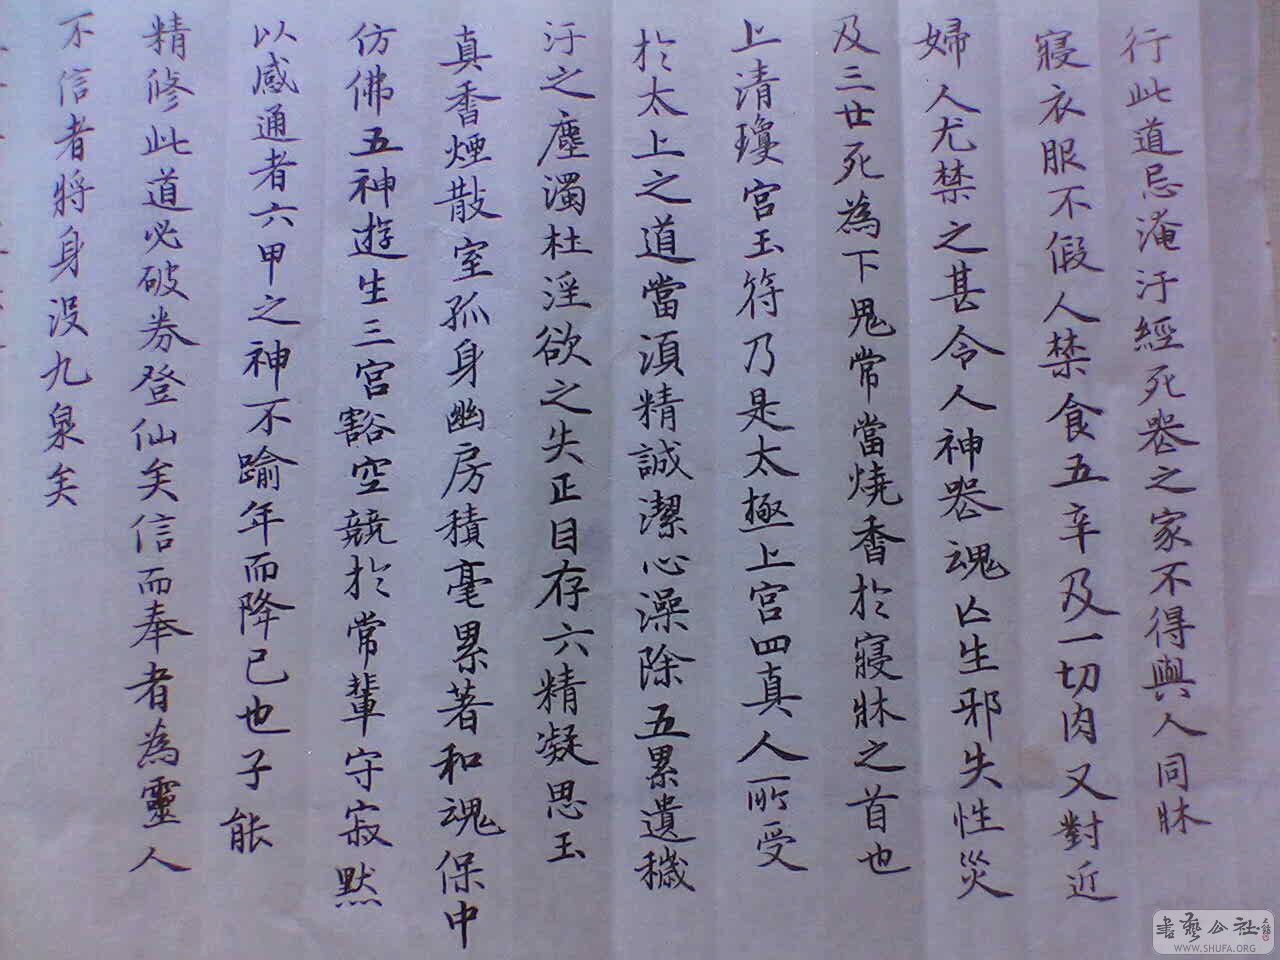 行此道忌淹汙經死丧之家不得與人同牀
寢衣服不假人禁食五辛及一切肉又對近
婦人尤禁之甚令人神丧魂亡生邪失性災
及三世死為下鬼常當燒香於寢牀之首也
上清瓊宮玉符乃是太極上宮四真人所受
於太上之道當須精誠潔心澡除五累遺穢
汙之塵濁杜淫欲之失正目存六精凝思玉
真香煙散室孤身幽房積毫累著和魂保中
仿佛五神遊生三宮豁空競於常輩守寂默
以感通者六甲之神不踰年而降已也子能
精修此道必破券登仙矣信而奉者為靈人
不信者將身没九泉矣
書藝公社
WWW.SHUFA.ORG